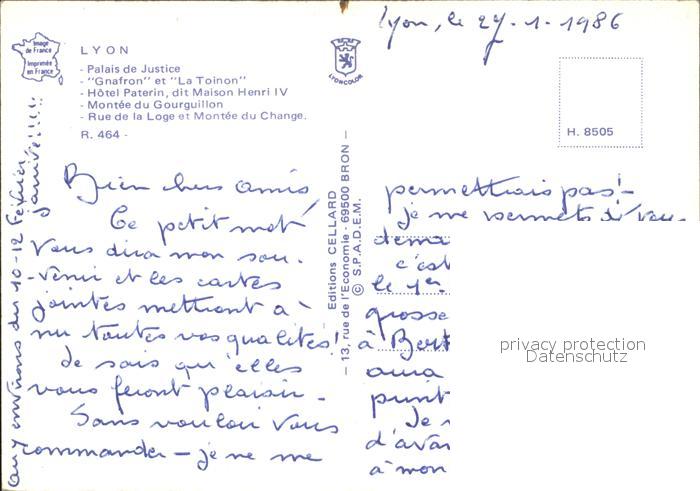 Image
de France
Imprimée
en France
LYON
- Palais de Justice
- "Gnafron" et "La Toinon"
- Hôtel Paterin, dit Maison Henri IV
- Montée du Gourguillon
- Rue de la Loge et Montée du Change.
R. 464 -
LYONCOLOR
Lyon, le 27-1-1986
H. 8505
Editions CELLARD
- 13, rue de l'Economie - 69500 BRON -
© S.P.A.D.E.M.
Bien chers amis,
Ce petit mot
vous dira mon sou-
-venir et les cartes
jointes mettront à
nu toutes vos qualités!
Je sais qu'elles
vous feront plaisir -
Sans vouloir vous
commander - je ne me
permettrais pas! -
je me permets de vous
dema
c'est
le 1er
grosse
à Bert
aura
punt
Je
d'avan
à mon
aux environs du 10-12 Février
j'arrive!!!!!
privacy protection
Datenschutz